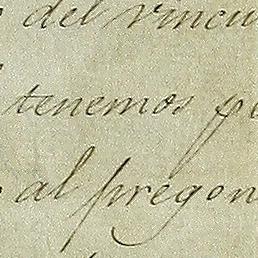 del vincu
tenemos pe
al pregon